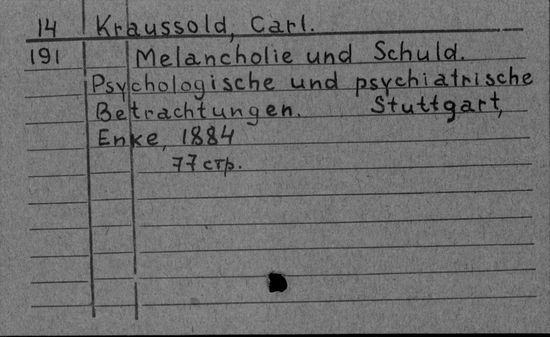 14 Kraussold, Carl.
191 Melancholie und Schuld.
Psychologische und psychiatrische
Betrachtungen. Stuttgart,
Enke, 1884
77 стр.